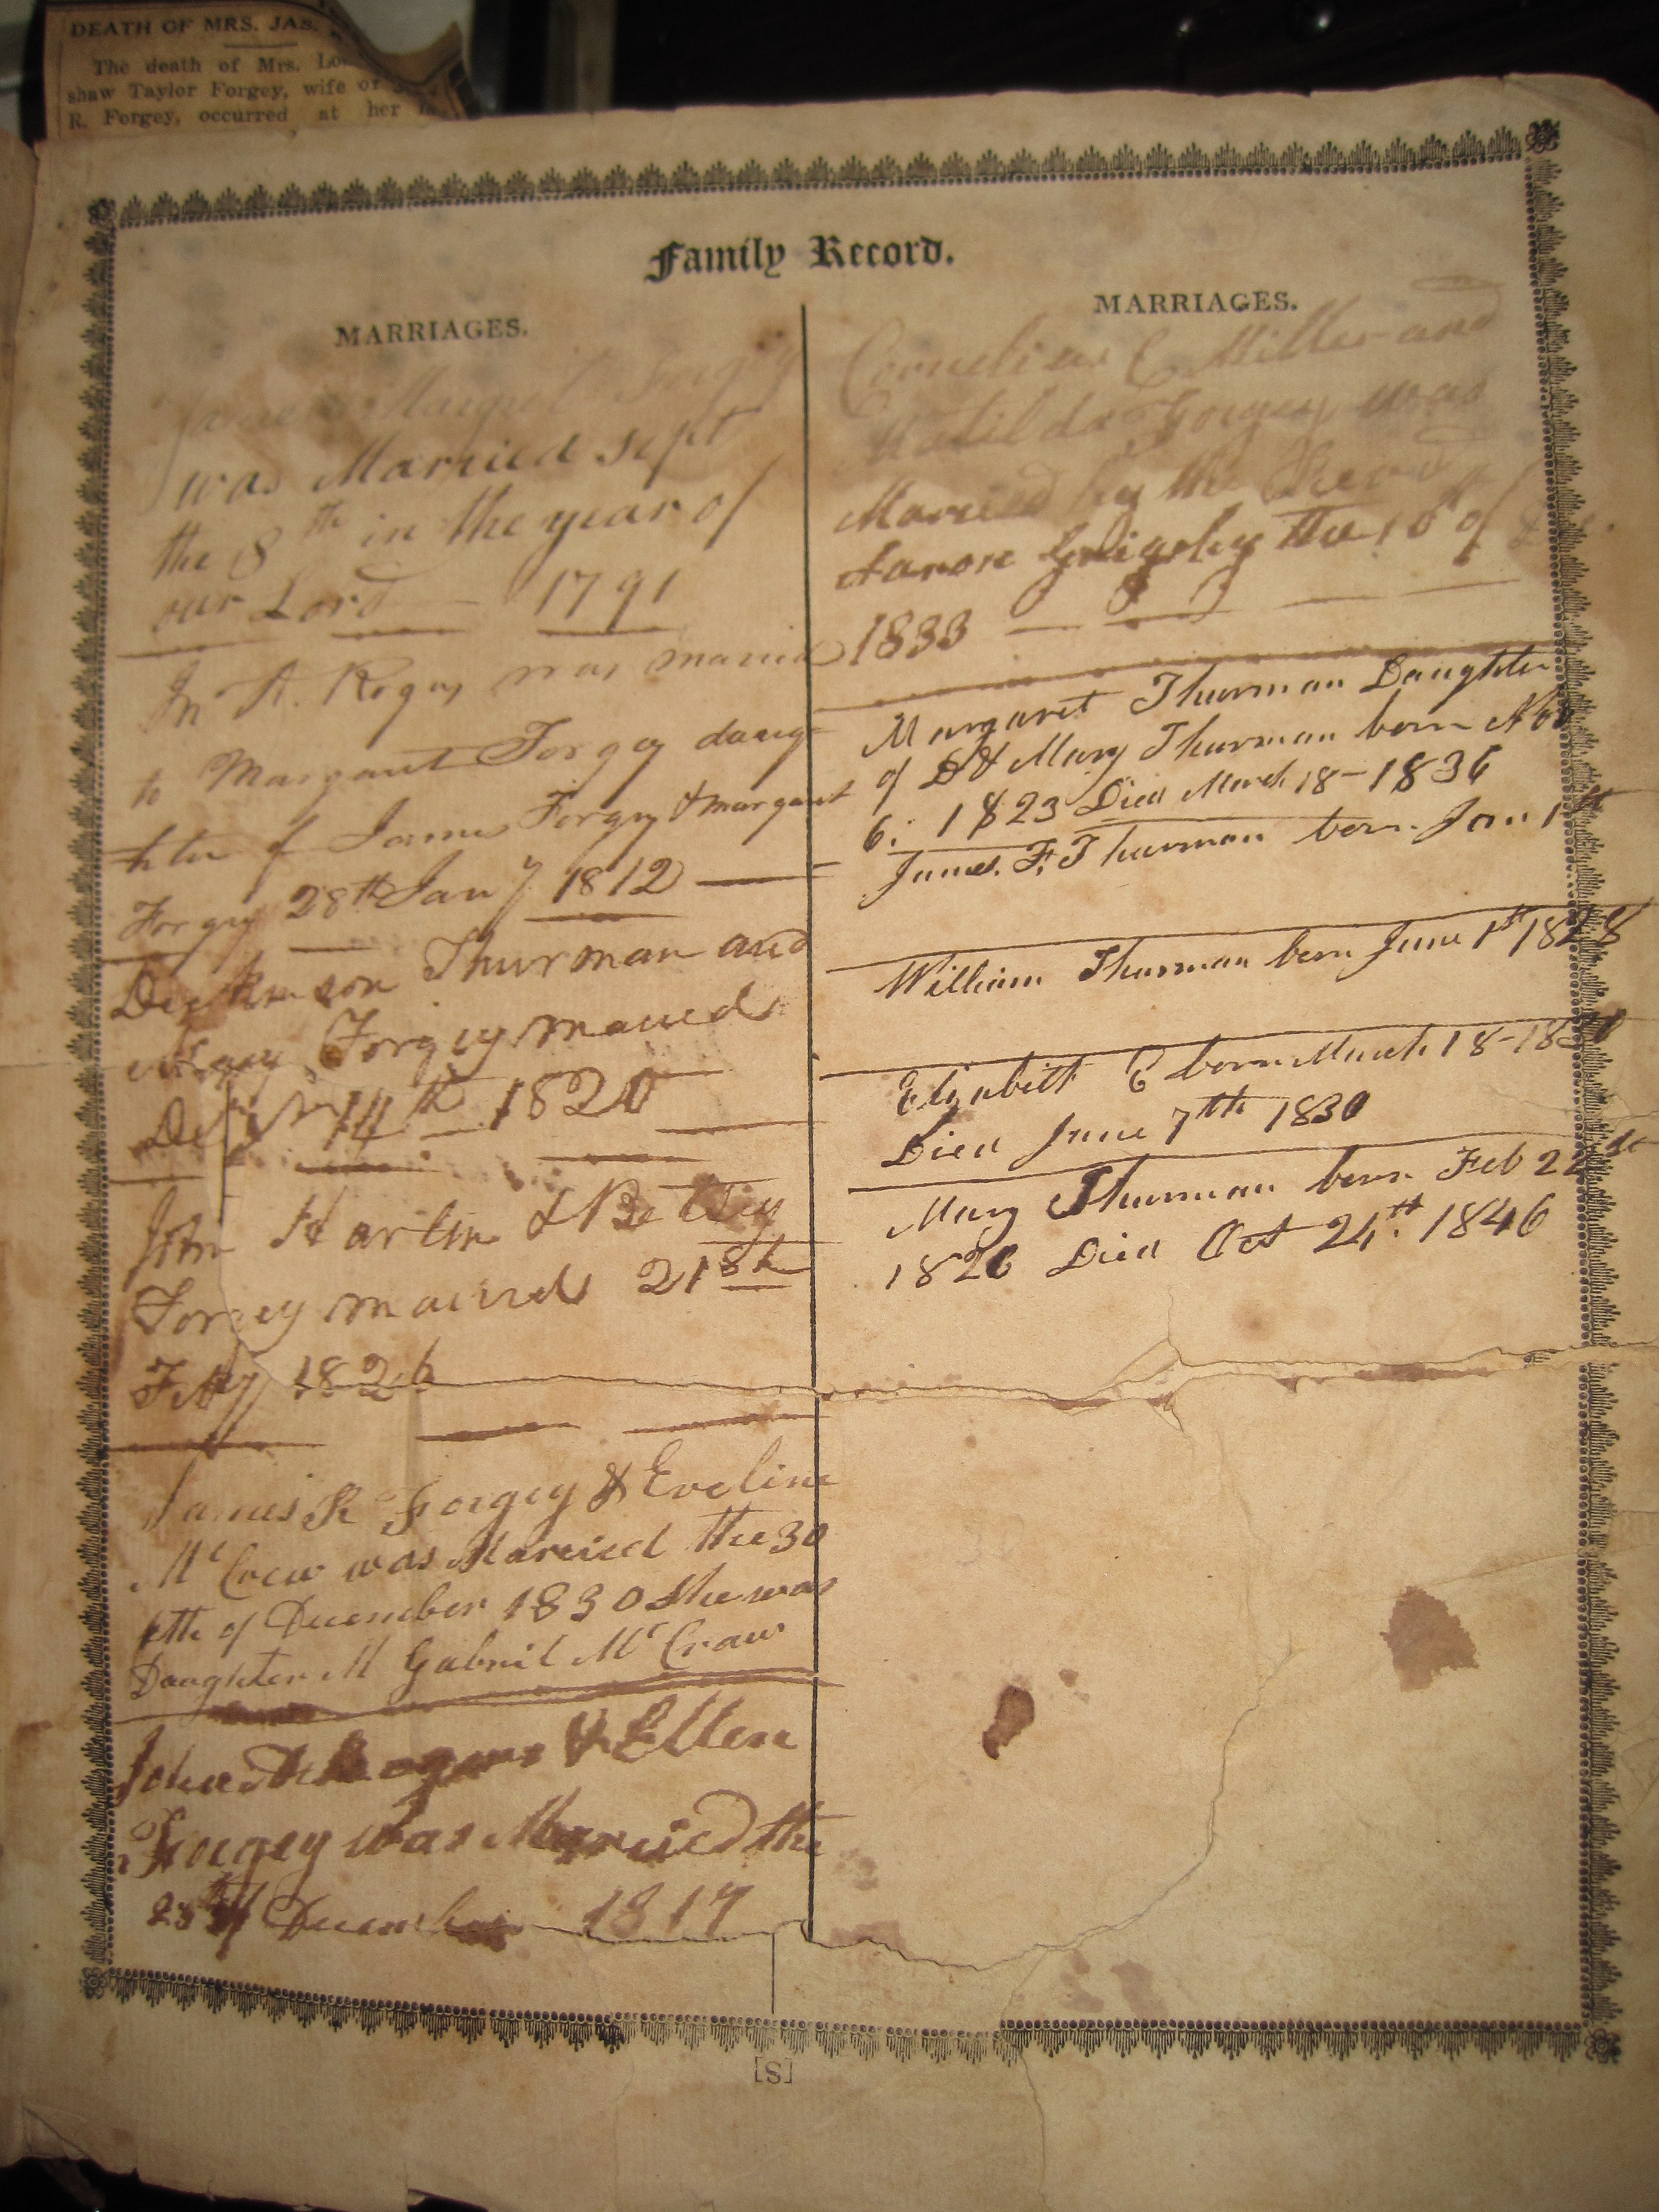 DEATH OF MRS. JAS.
The death of Mrs.
shaw Taylor Forgey, wife of
R. Forgey, occurred at her
Family Record.
MARRIAGES.
was Married sept
the 8th in the year of
our Lord — 1791
was maried
to Margaret Forgey daug
hter of James Forgey & margaret
Forgey 28th Jany 1812
Thurman and
Forgey maried
14th 1820
John Harlin & Betsy
Forgey maired 21st
Feby 1826
James R Forgey & Eveline
McCrew was Married the 30
tth of December 1830 she was
Daughter M Gabriel McCraw
John & Ellen
Forgey was Married the
28 of December 1817
MARRIAGES.
Cornelius C Miller and
Matilda Forgey was
Married by the Revd
Aaron Grigsby the 16 of
1833
Margaret Thurman Daughter
of D & Mary Thurman born Nov
6. 1823 Died March 18 - 1836
James. F. Thurman born Jan 1st
William Thurman born June 1st 1828
Elizabeth C born March 18 - 18
Died June 7th 1830
Mary Thurman born Feb
1826 Died Oct 24th. 1846
[S]